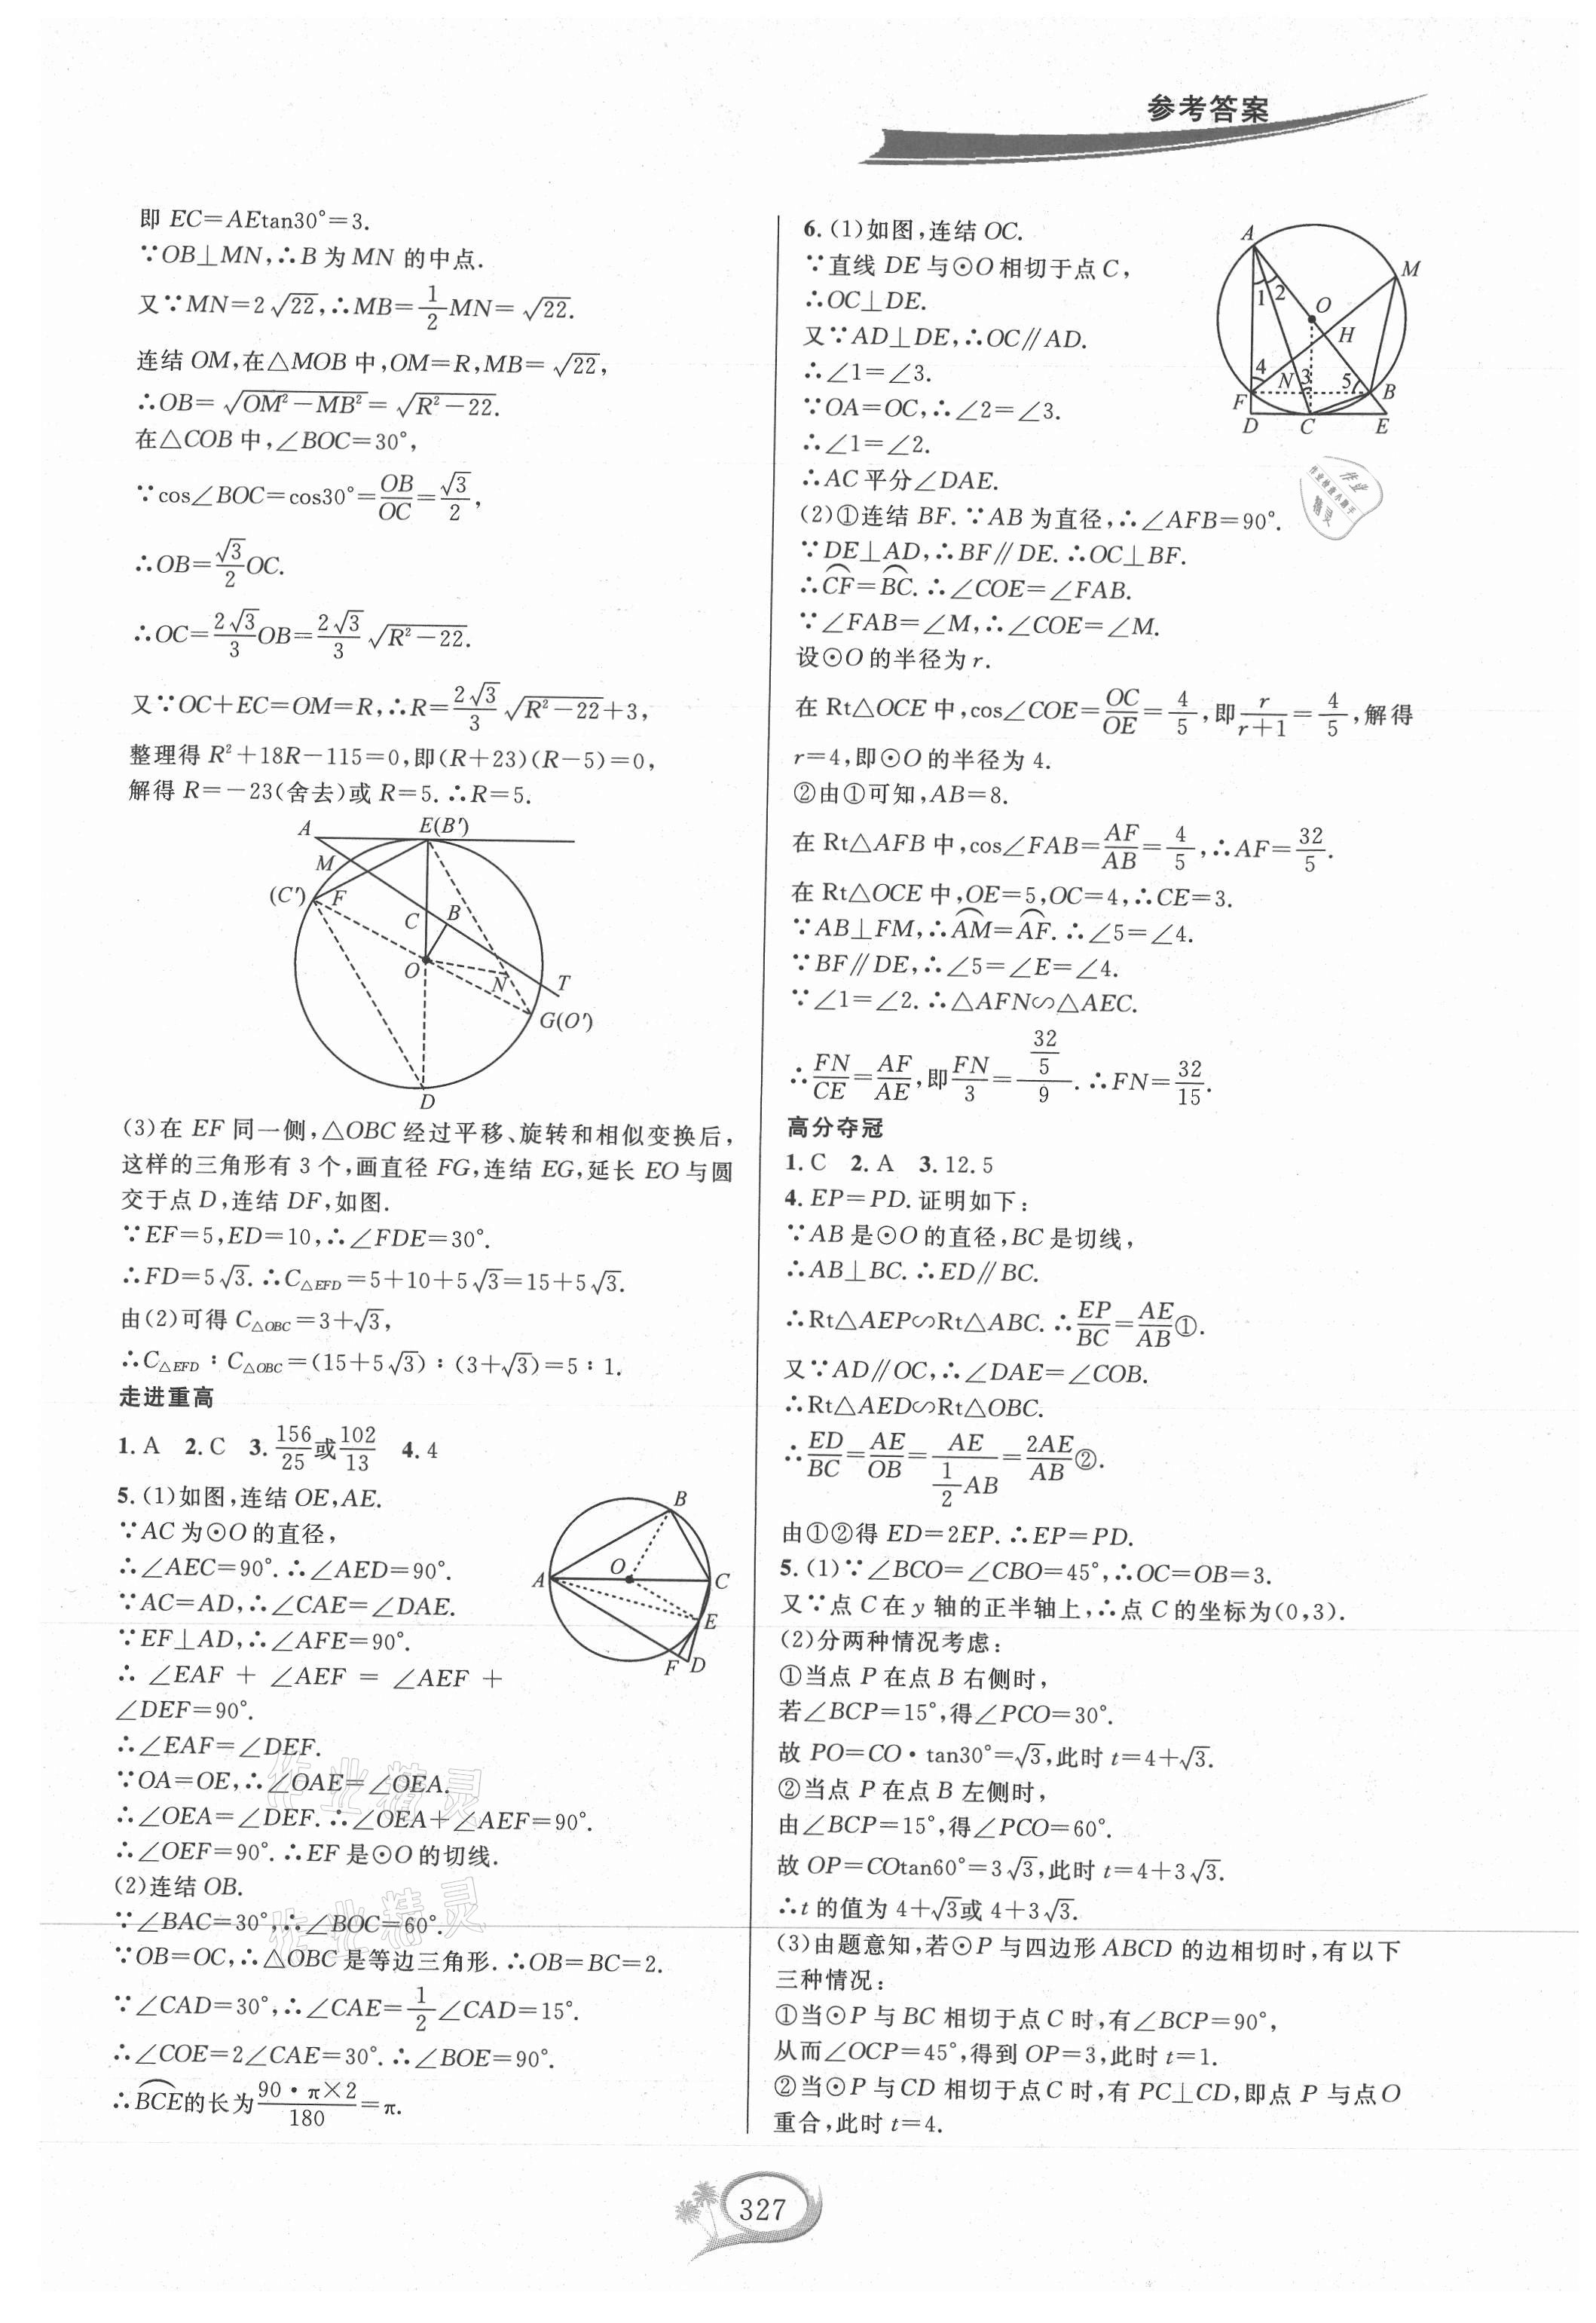 参考答案
即 EC=AEtan30°=3.
∵OB⊥MN,∴B 为 MN 的中点.
又∵MN=2√22,∴MB=1/2MN=√22.
连结 OM,在△MOB 中,OM=R,MB=√22,
∴OB=√(OM²-MB²)=√(R²-22).
在△COB 中,∠BOC=30°,
∵cos∠BOC=cos30°=OB/OC=√3/2,
∴OB=√3/2 OC.
∴OC=2√3/3 OB=2√3/3 √(R²-22).
又∵OC+EC=OM=R,∴R=2√3/3 √(R²-22)+3,
整理得 R²+18R-115=0,即(R+23)(R-5)=0,
解得 R=-23(舍去)或 R=5.∴R=5.
A E(B′)
M
(C′) F
C B
O
N T
G(O′)
D
(3)在 EF 同一侧,△OBC 经过平移、旋转和相似变换后,
这样的三角形有 3 个,画直径 FG,连结 EG,延长 EO 与圆
交于点 D,连结 DF,如图.
∵EF=5,ED=10,∴∠FDE=30°.
∴FD=5√3.∴C△EFD=5+10+5√3=15+5√3.
由(2)可得 C△OBC=3+√3,
∴C△EFD∶C△OBC=(15+5√3)∶(3+√3)=5∶1.
走进重高
1. A 2. C 3. 156/25或102/13 4. 4
5. (1)如图,连结 OE,AE.
∵AC 为⊙O 的直径,
∴∠AEC=90°.∴∠AED=90°.
∵AC=AD,∴∠CAE=∠DAE.
∵EF⊥AD,∴∠AFE=90°.
∴ ∠EAF + ∠AEF = ∠AEF +
∠DEF=90°.
∴∠EAF=∠DEF.
∵OA=OE,∴∠OAE=∠OEA.
∴∠OEA=∠DEF.∴∠OEA+∠AEF=90°.
∴∠OEF=90°.∴EF 是⊙O 的切线.
(2)连结 OB.
∵∠BAC=30°,∴∠BOC=60°.
∵OB=OC,∴△OBC 是等边三角形.∴OB=BC=2.
∵∠CAD=30°,∴∠CAE=1/2∠CAD=15°.
∴∠COE=2∠CAE=30°.∴∠BOE=90°.
∴B͡CE的长为(90·π×2)/180=π.
B
A O C
E
F D
作业精灵
作业精灵
6. (1)如图,连结 OC.
∵直线 DE 与⊙O 相切于点 C,
∴OC⊥DE.
又∵AD⊥DE,∴OC∥AD.
∴∠1=∠3.
∵OA=OC,∴∠2=∠3.
∴∠1=∠2.
∴AC 平分∠DAE.
A
M
1 2
O
H
4 N 3 5 B
F
D C E
作业
精灵
(2)①连结 BF.∵AB 为直径,∴∠AFB=90°.
∵DE⊥AD,∴BF∥DE.∴OC⊥BF.
∴C͡F=B͡C.∴∠COE=∠FAB.
∵∠FAB=∠M,∴∠COE=∠M.
设⊙O 的半径为 r.
在 Rt△OCE 中,cos∠COE=OC/OE=4/5,即r/(r+1)=4/5,解得
r=4,即⊙O 的半径为 4.
②由①可知,AB=8.
在 Rt△AFB 中,cos∠FAB=AF/AB=4/5,∴AF=32/5.
在 Rt△OCE 中,OE=5,OC=4,∴CE=3.
∵AB⊥FM,∴A͡M=A͡F.∴∠5=∠4.
∵BF∥DE,∴∠5=∠E=∠4.
∵∠1=∠2.∴△AFN∽△AEC.
∴FN/CE=AF/AE,即FN/3=(32/5)/9.∴FN=32/15.
高分夺冠
1. C 2. A 3. 12.5
4. EP=PD.证明如下:
∵AB 是⊙O 的直径,BC 是切线,
∴AB⊥BC.∴ED∥BC.
∴Rt△AEP∽Rt△ABC.∴EP/BC=AE/AB①.
又∵AD∥OC,∴∠DAE=∠COB.
∴Rt△AED∽Rt△OBC.
∴ED/BC=AE/OB=AE/(1/2 AB)=2AE/AB②.
由①②得 ED=2EP.∴EP=PD.
5. (1)∵∠BCO=∠CBO=45°,∴OC=OB=3.
又∵点 C 在 y 轴的正半轴上,∴点 C 的坐标为(0,3).
(2)分两种情况考虑:
①当点 P 在点 B 右侧时,
若∠BCP=15°,得∠PCO=30°.
故 PO=CO·tan30°=√3,此时 t=4+√3.
②当点 P 在点 B 左侧时,
由∠BCP=15°,得∠PCO=60°.
故 OP=COtan60°=3√3,此时 t=4+3√3.
∴t 的值为 4+√3或 4+3√3.
(3)由题意知,若⊙P 与四边形 ABCD 的边相切时,有以下
三种情况:
①当⊙P 与 BC 相切于点 C 时,有∠BCP=90°,
从而∠OCP=45°,得到 OP=3,此时 t=1.
②当⊙P 与CD 相切于点 C 时,有 PC⊥CD,即点 P 与点 O
重合,此时 t=4.
327